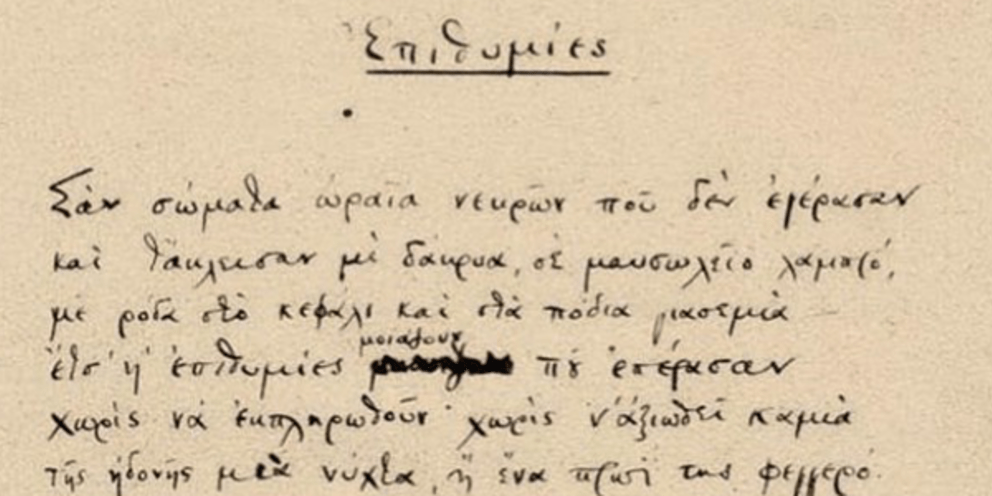 Ἐπιθυμίες
Σὰν σώματα ὡραῖα νεκρῶν ποῦ δὲν ἐγέρασαν
καὶ τἄκλεισαν μὲ δάκρυα, σὲ μαυσωλεῖο λαμπρό,
μὲ ρόδα στὸ κεφάλι καὶ στὰ πόδια γιασεμιὰ
μοιάζουν
ἔτσ' ᾑ ἐπιθυμίες ποῦ ἐπέρασαν
χωρὶς νὰ ἐκπληρωθοῦν· χωρὶς ν' ἀξιωθεῖ καμιὰ
τῆς ἡδονῆς μιὰ νύχτα, ἢ ἕνα πρωῒ της φεγγερό.